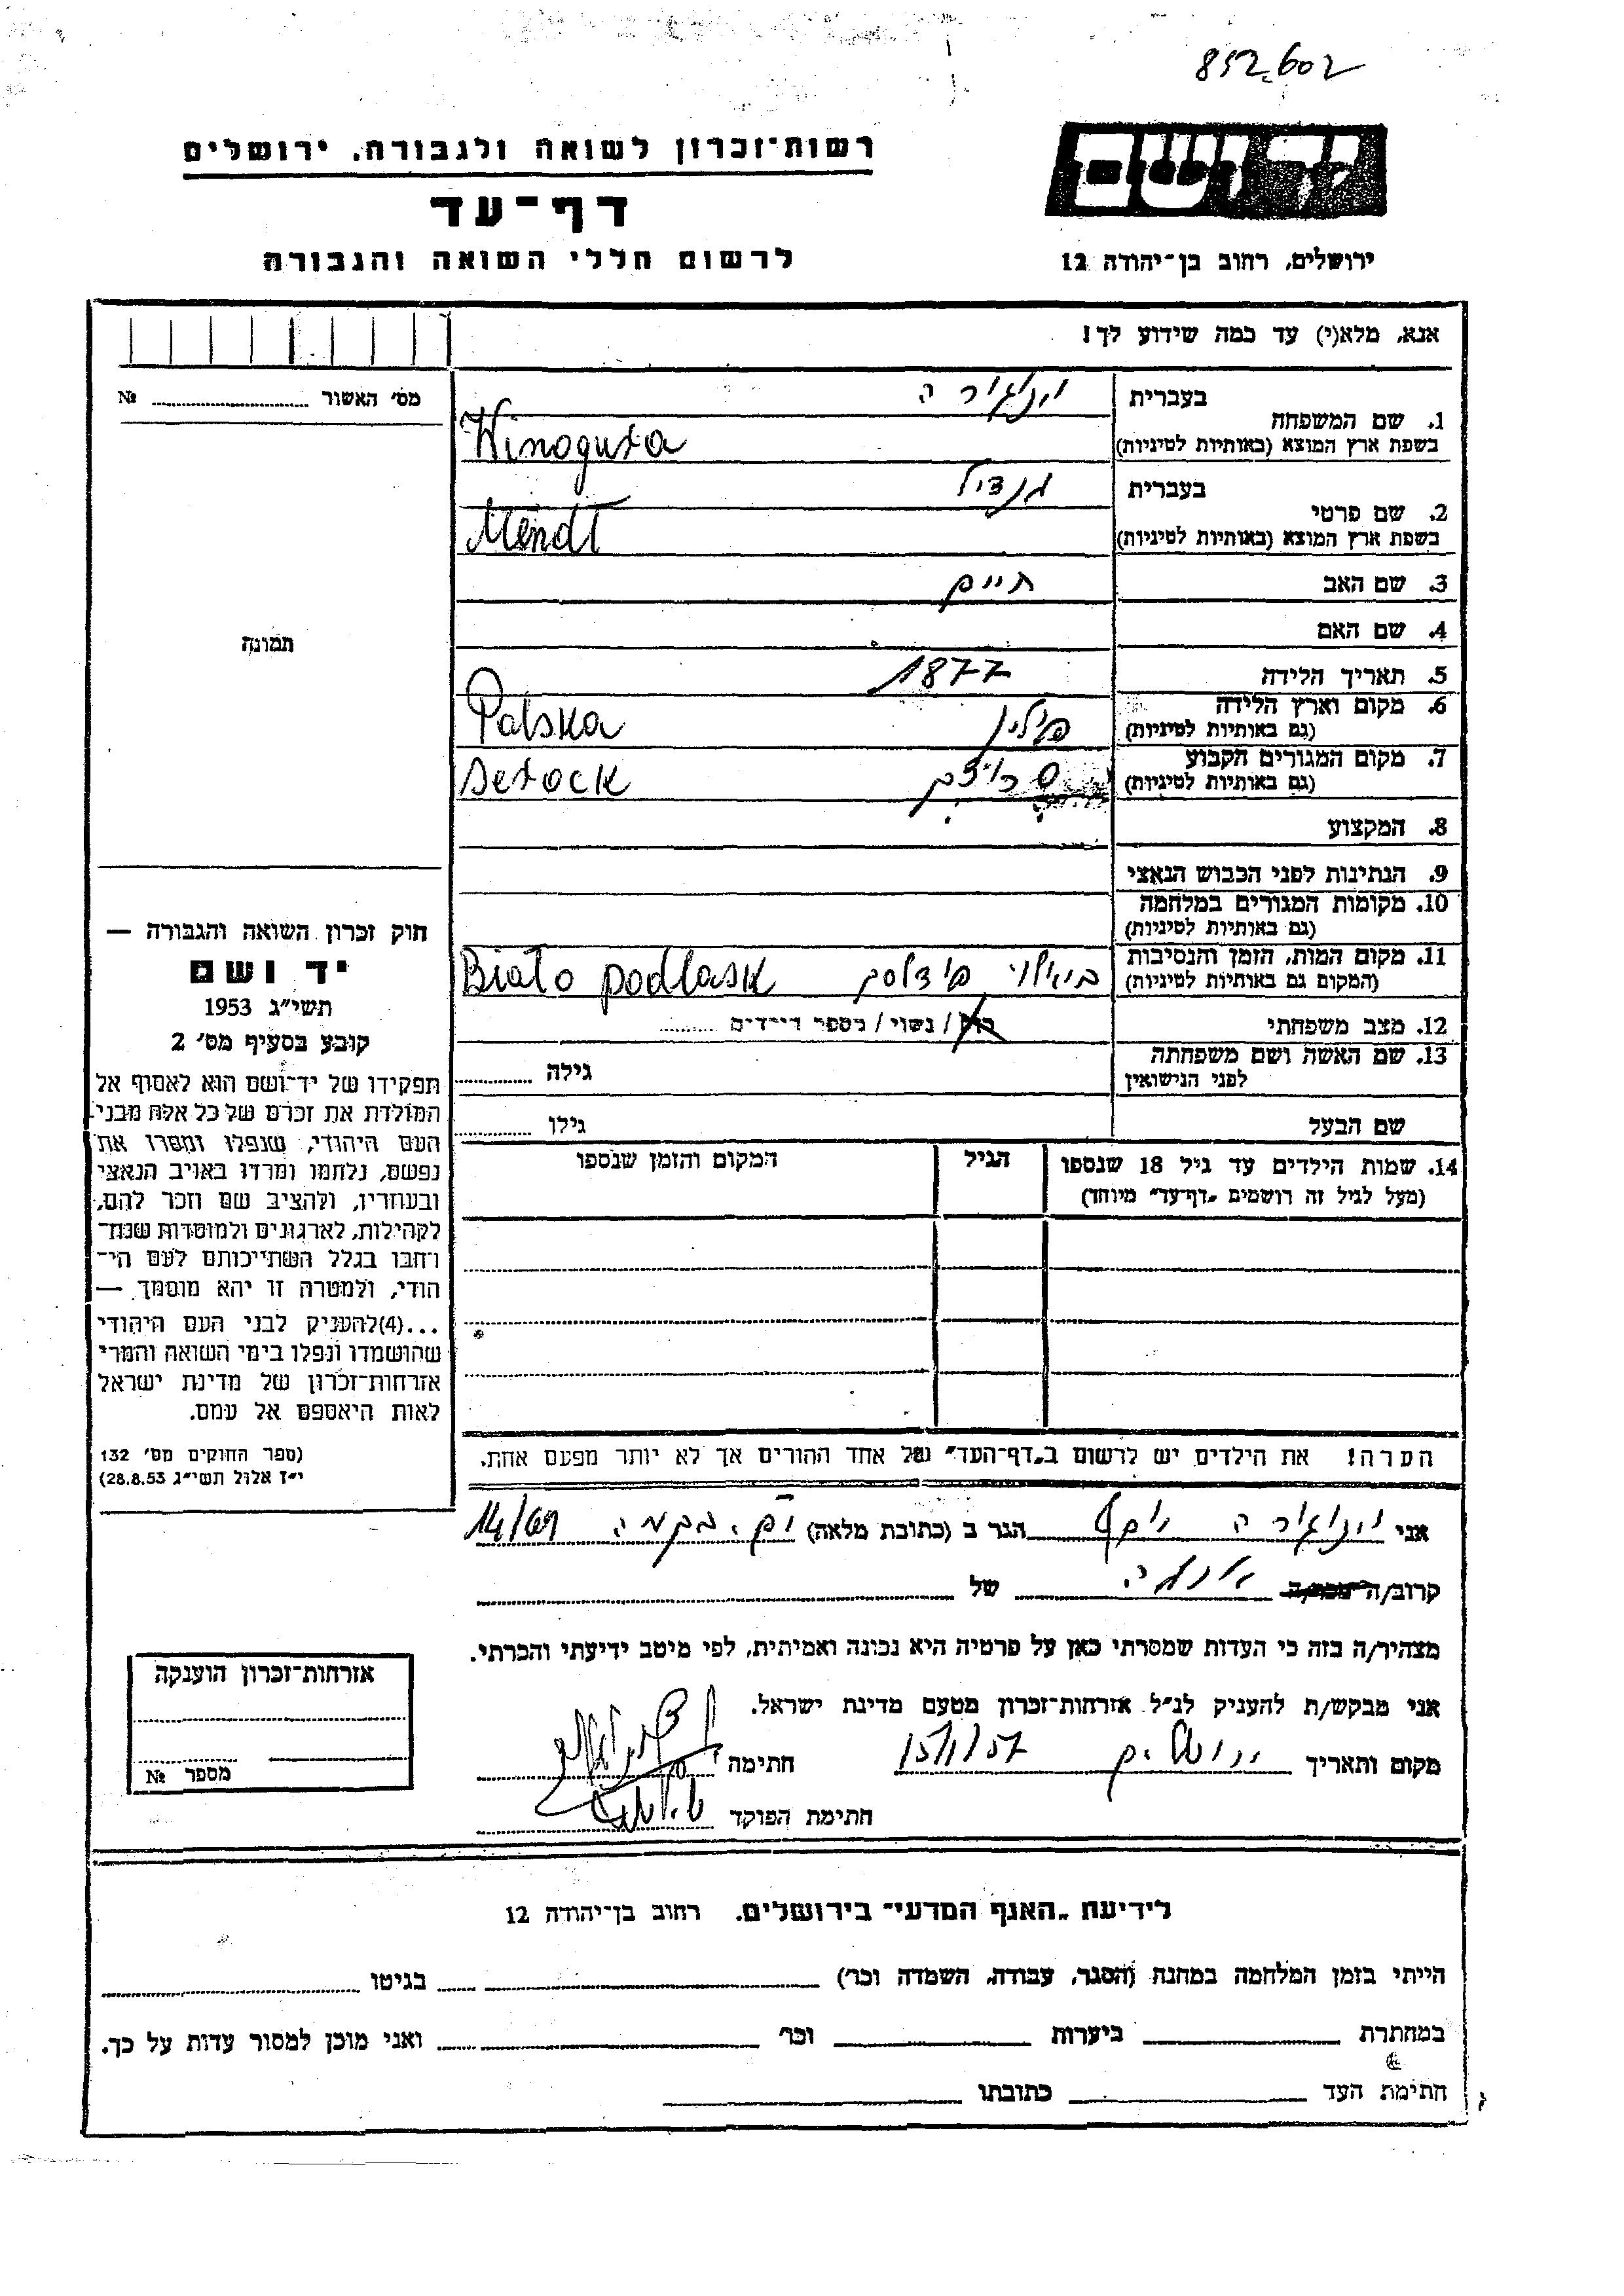 852.602
רשות־זכרון לשואה ולגבורה, ירושלים
יד ושם
דף־עד
לרשום חללי השואה והגבורה
ירושלים, רחוב בן־יהודה 12
אנא, מלא(י) עד כמה שידוע לך!
מס' האשור № ........
תמונה
1. שם המשפחה
בעברית
בשפת ארץ המוצא (באותיות לטיניות)
Winogura
2. שם פרטי
בעברית מנדיל
בשפת ארץ המוצא (באותיות לטיניות) Mendl
3. שם האב חיים
4. שם האם
5. תאריך הלידה 1877
6. מקום וארץ הלידה
(גם באותיות לטיניות) פולין Polska
7. מקום המגורים הקבוע
(גם באותיות לטיניות) Serock
8. המקצוע
9. הנתינות לפני הכבוש הנאצי
10. מקומות המגורים במלחמה
(גם באותיות לטיניות)
11. מקום המות, הזמן והנסיבות
(המקום גם באותיות לטיניות) Biało podlask
12. מצב משפחתי רוק / נשוי / מספר הילדים ........
13. שם האשה ושם משפחתה
לפני הנישואין גילה ........
שם הבעל גילו ........
14. שמות הילדים עד גיל 18 שנספו הגיל המקום והזמן שנספו
(מעל לגיל זה רושמים „דף־עד" מיוחד)
הערה! את הילדים יש לרשום ב„דף־העד" של אחד ההורים אך לא יותר מפעם אחת.
חוק זכרון השואה והגבורה —
יד ושם
תשי"ג 1953
קובע בסעיף מס' 2
תפקידו של יד־ושם הוא לאסוף אל
המולדת את זכרם של כל אלה מבני
העם היהודי, שנפלו ומסרו את
נפשם, נלחמו ומרדו באויב הנאצי
ובעוזריו, ולהציב שם וזכר להם,
לקהילות, לארגונים ולמוסדות שנח־
רבו בגלל השתייכותם לעם הי־
הודי, ולמטרה זו יהא מוסמך —
...(4)להעניק לבני העם היהודי
שהושמדו ונפלו בימי השואה והמרי
אזרחות־זכרון של מדינת ישראל
לאות היאספם אל עמם.
(ספר החוקים מס' 132
י"ז אלול תשי"ג 28.8.53)
אני יוסף הגר ב (כתובת מלאה) 14/69
קרוב/ה של
מצהיר/ה בזה כי העדות שמסרתי כאן על פרטיה היא נכונה ואמיתית, לפי מיטב ידיעתי והכרתי.
אני מבקש/ת להעניק לנ"ל אזרחות־זכרון מטעם מדינת ישראל.
מקום ותאריך ירושלים 15/1/57 חתימה
חתימת הפוקד
אזרחות־זכרון הוענקה
מספר №
לידיעת „האגף המדעי" בירושלים, רחוב בן־יהודה 12
הייתי בזמן המלחמה במחנה (הסגר, עבודה, השמדה וכו') בגיטו
במחתרת ביערות וכו' ואני מוכן למסור עדות על כך.
חתימת העד כתובתו